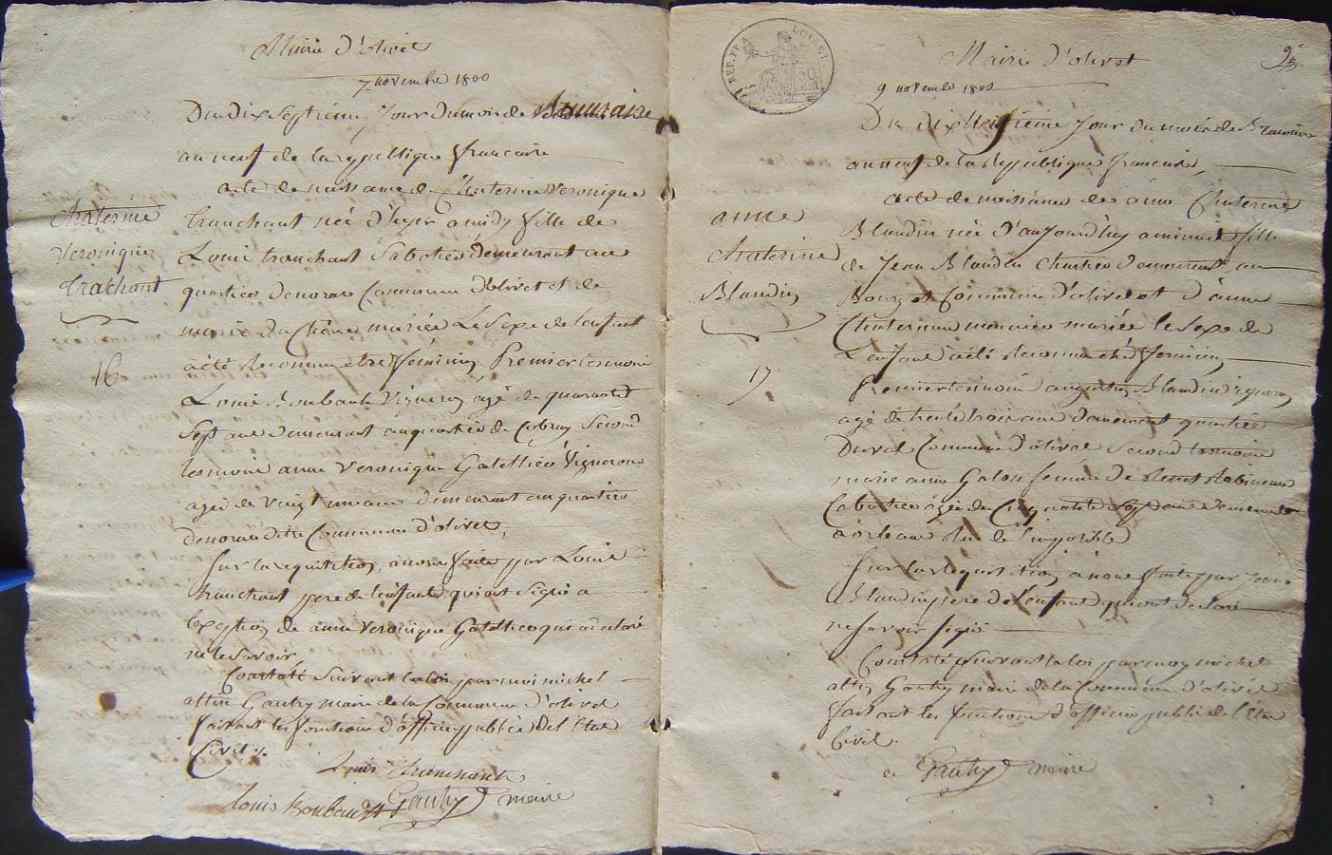 Mairie d'olivet
7 novembre 1800
Du dix Septieme Jour du mois de Brumaire
an neuf de la republique francaise
acte de naissance de Chaterine Veronique
Tranchant née d'hyer a midy fille de
Louis tranchant Sabotier demeurant au
quartier de Commune d'olivet et de
marie du Chêne mariée Le Sexe de lenfant
a été Reconnu etre féminin Premier temoin
Louis Boubault Vigneron agé de quarante
Sept ans demeurant au quartier de Second
temoin anne Veronique Vigneron
agée de vingt un ans demeurant au quartier
ditte Commune d'olivet,
Sur la requisition a nous faite par Louis
tranchant pere de l'enfant qui ont Signé a
lexeption de anne Veronique que a declaré
ne le Savoir
Constaté Suivant la loi par moi michel
altin Gautry maire de la Commune d'olivet
faisant les fonctions d'officier public de l'Etat
Civil
Louis tranchant
louis Boubault Gautry maire
Chaterine
Veronique
Trachant
16
Mairie d'olivet
9 novembre 1800
Du dix Jour du mois de Brumaire
an neuf de la Republique francaise,
acte de naissance de anne Chaterine
Blandin née d'aujourd'huy a minuit fille
de Jean Blandin Chartier demeurant au
Bourg et Commune d'olivet et d'anne
Chaterine mariée le Sexe de
L'enfant a été Reconnu etre feminin
Premier temoin augustin Blandin vigneron
agé de trente trois ans demeurant quartier
Duval Commune d'olivet Second temoin
marie anne Galon femme de
Cabartier agée de Cinquante Sept ans demeurant
a orleans Rue de l'imposible
Sur la requisition a nous faite par Jean
Blandin pere de l'enfant qui ont declaré
ne Savoir Signé
Constaté Suivant la loi par moy michel
altin Gautry maire de la Commune d'olivet
faisant les fonctions d'officier public de l'Etat
Civil
Gautry maire
anne
Chaterine
Blandin
17